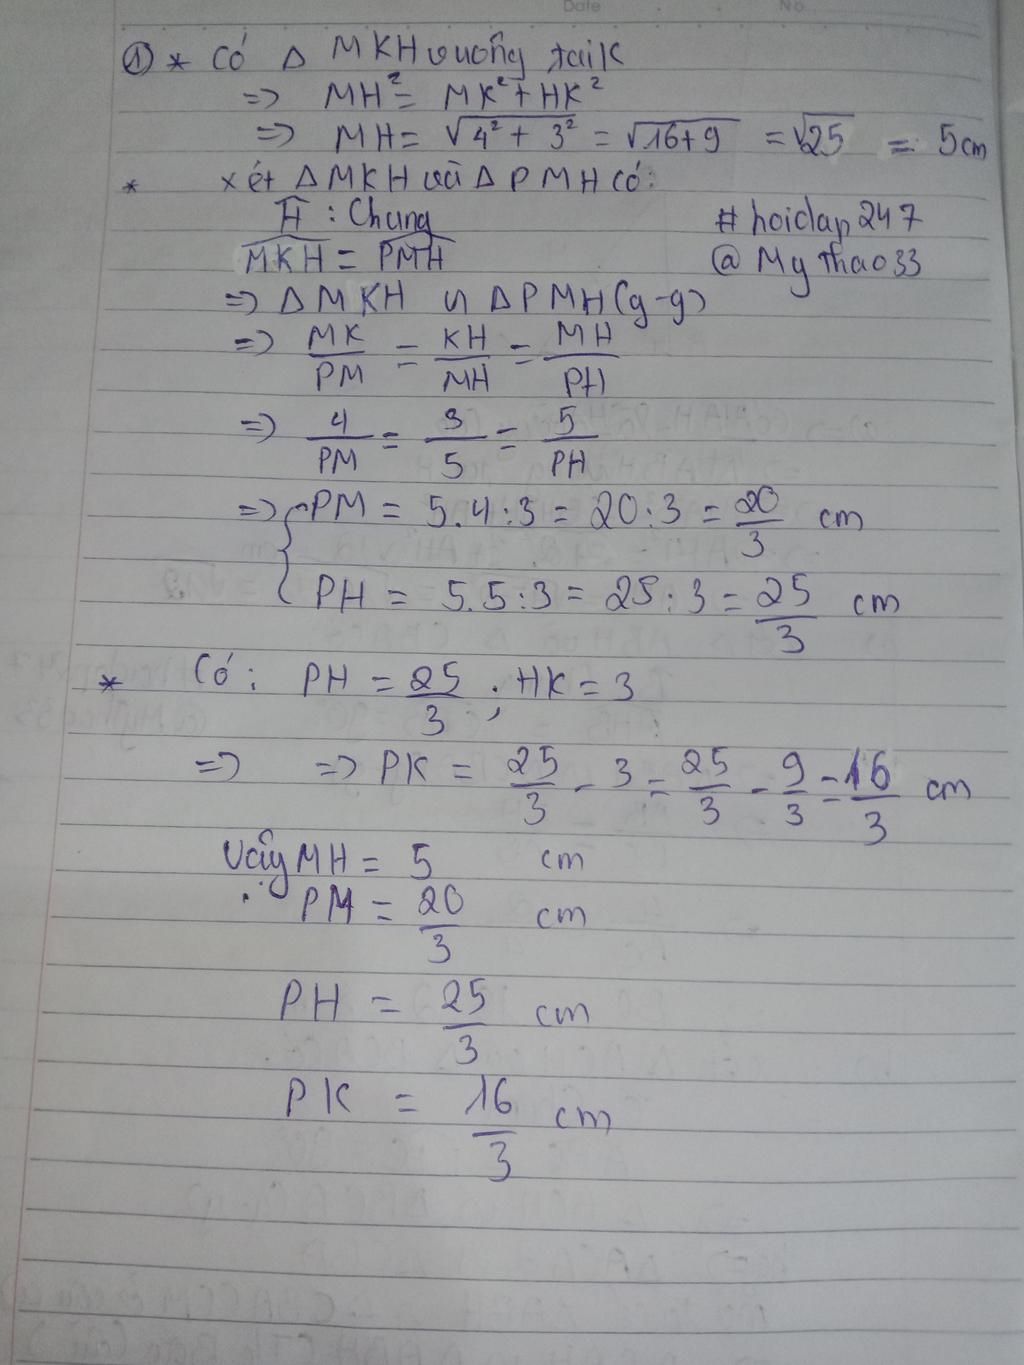 Date No.
① * Có Δ MKH vuông tại K
=> MH² = MK² + HK²
=> MH = √4² + 3² = √16+9 = √25 = 5cm
* xét ΔMKH và ΔPMH có:
Ĥ : Chung #hoidap247
MKH = PMH @MyThao33
=> ΔMKH ∽ ΔPMH (g-g)
=> MK/PM = KH/MH = MH/PH
=> 4/PM = 3/5 = 5/PH
=> { PM = 5.4:3 = 20:3 = 20/3 cm
PH = 5.5:3 = 25:3 = 25/3 cm
* Có: PH = 25/3 ; HK = 3
=> => PK = 25/3 - 3 = 25/3 - 9/3 = 16/3 cm
Vậy MH = 5 cm
PM = 20/3 cm
PH = 25/3 cm
PK = 16/3 cm